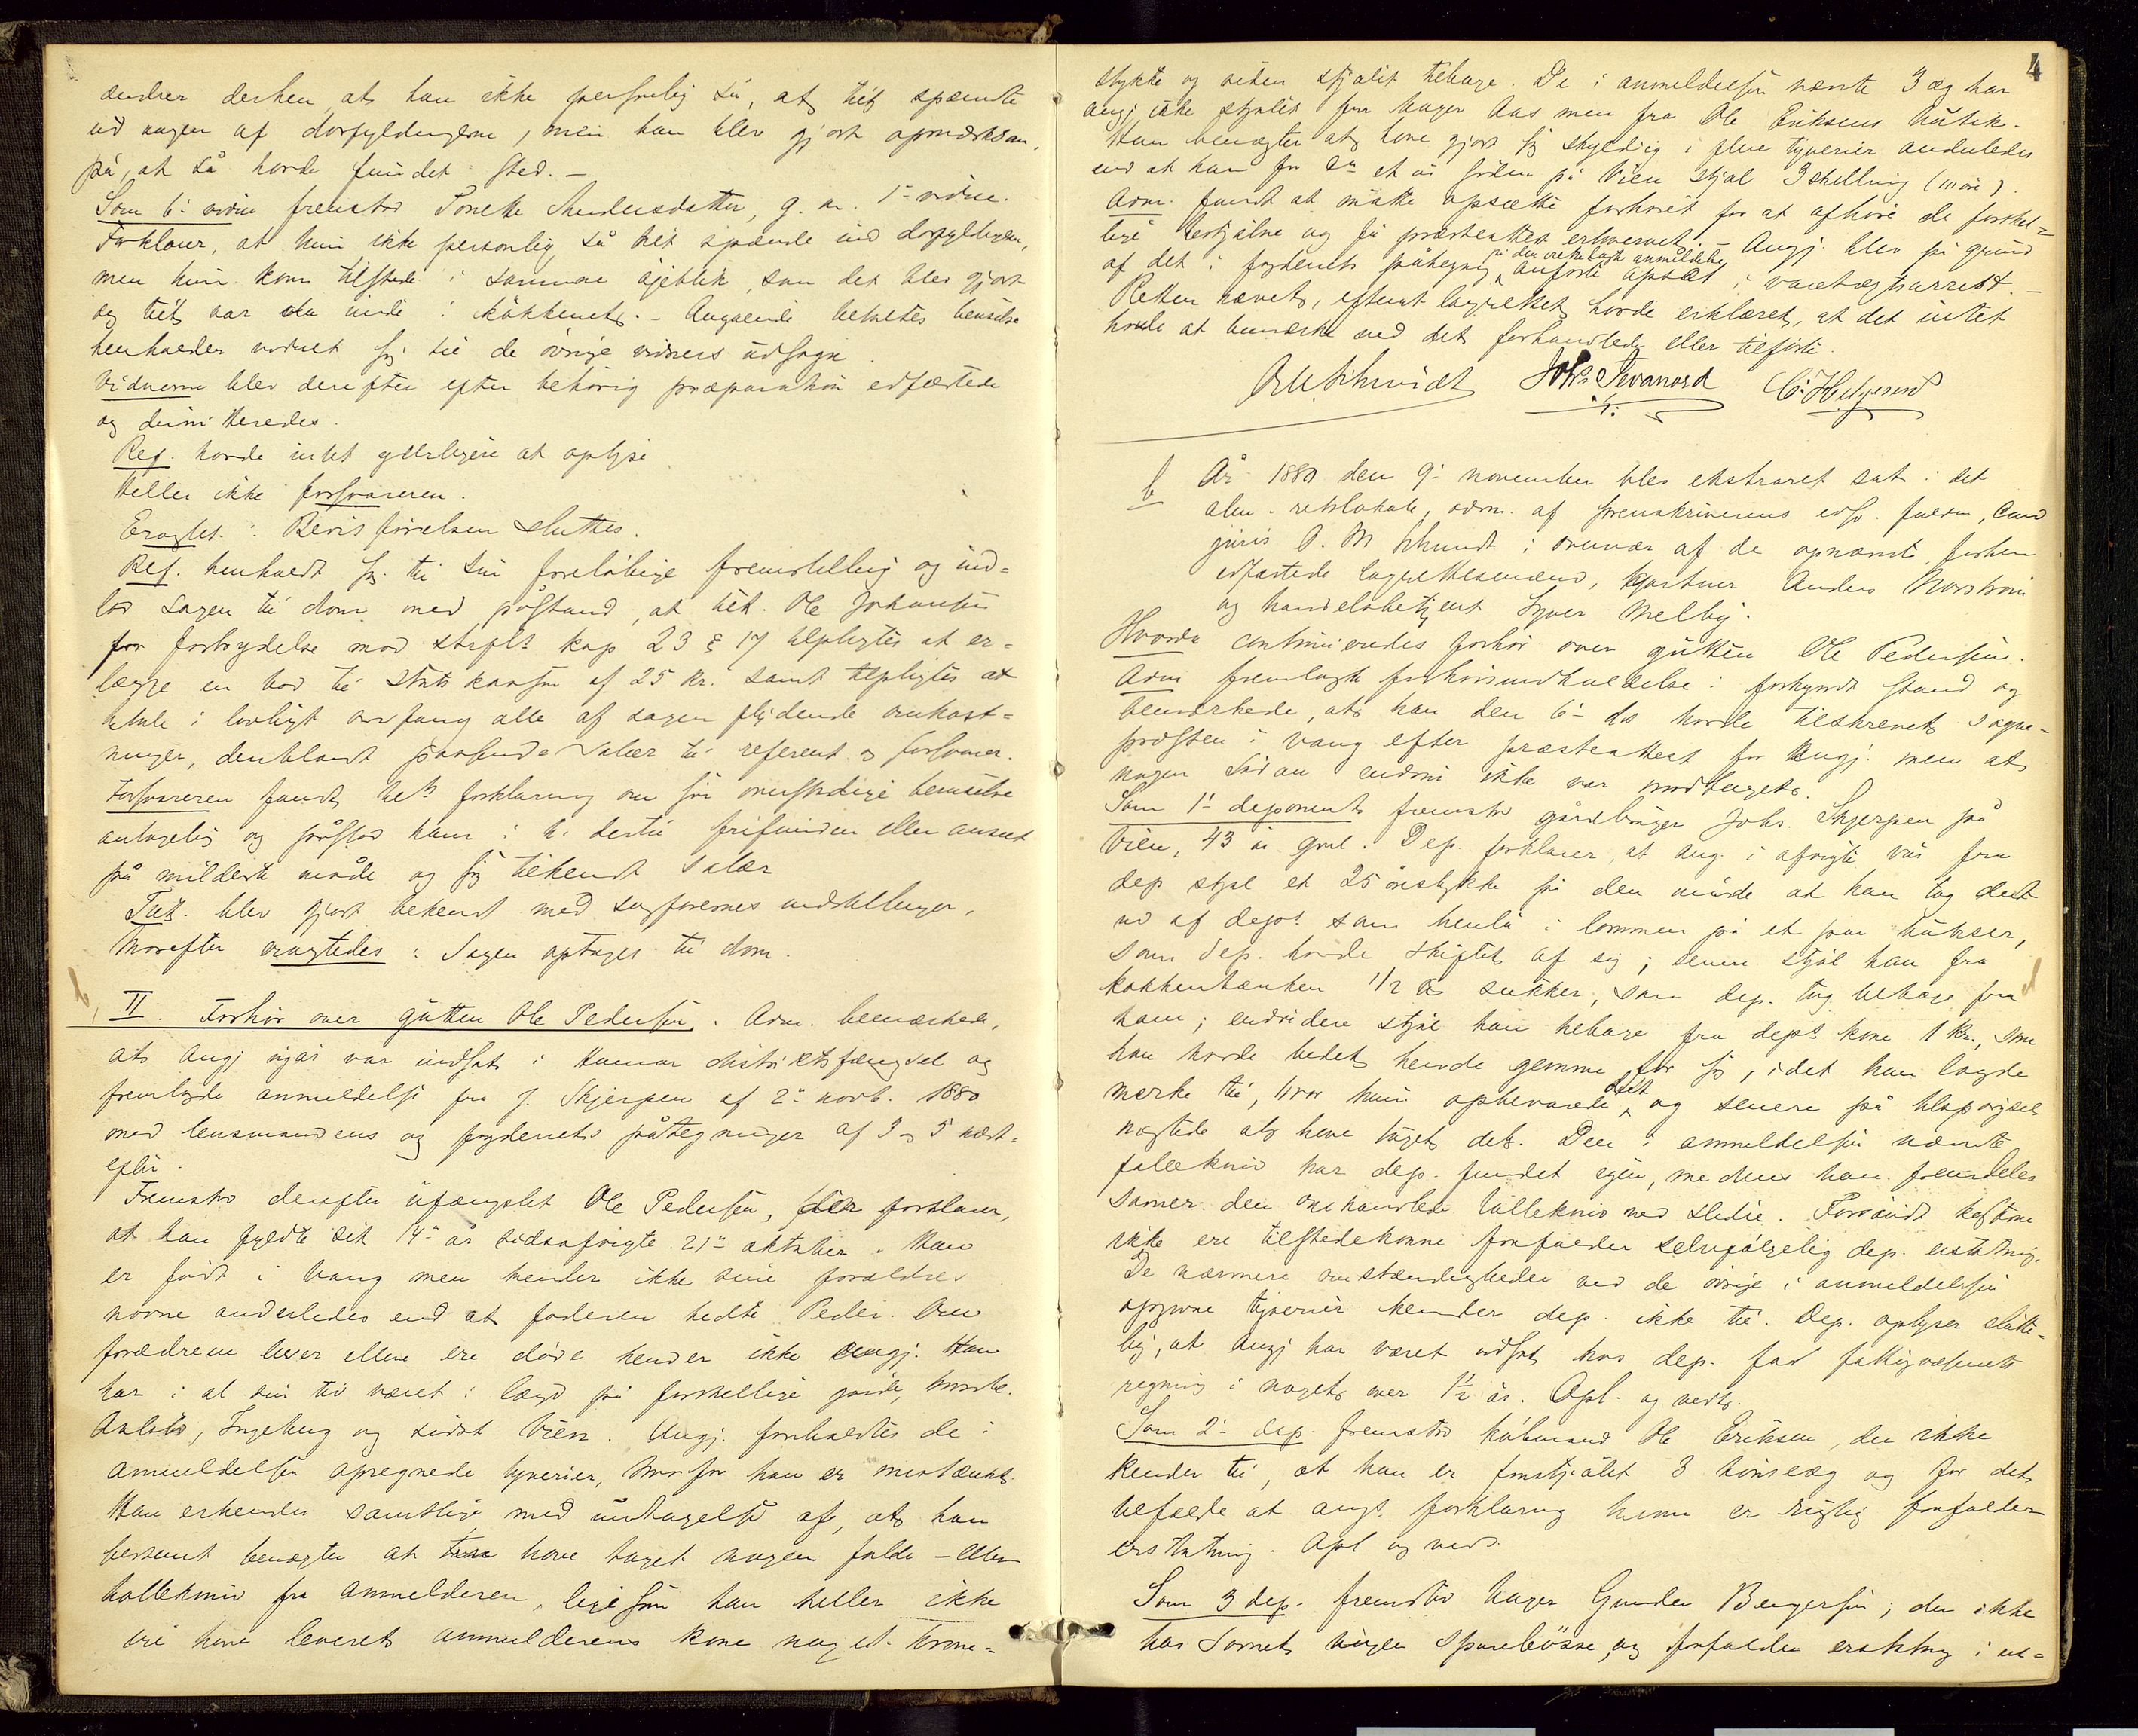 ændrer derhen, at han ikke personlig så, at tilt. spændte
ud nogen af dørfyldingerne, men han blev gjort opmærksom
på, at så havde fundet sted. –
Som 6. vidne fremstod Andersdatter, g. m. 1. vidne.
Forklarer, at hun ikke personlig så tilt. spænde ind dørfyldingen,
men hun kom tilstede i samme øjeblik, som det blev gjort
og tilt. var da inde i kökkenet. – Angaaende tiltaltes beruselse
henholder vidnet sig til de övrige vidners udsagn.
Vidnerne blev derefter efter behörig præparation edfæstede
og dimitteredes.
Ref. havde intet yderligere at oplyse
Heller ikke forsvareren.
Eragtet: Bevisförelsen sluttes.
Ref. henholdt sig til sin foreløbige fremstilling og ind=
lod sagen til dom med påstand, at tilt. Ole Johansen
for forbrydelse mod strfl.s kap 23 § 17 tilpligtes at er=
lægge en bod til statskassen af 25 kr. samt tilpligtes at
betale i lovligt omfang alle af sagen flydende omkost=
ninger, deriblandt passende salær til referent og forsvarer.
Forsvareren fandt tilt.s forklaring om sin beruselse
antagelig og påstod ham i h. dertil frifunden eller anseet
på mildeste måde og sig tilkendt salær
Tilt. blev gjort bekendt med sagförernes indstillinger,
hvorefter eragtedes: Sagen optages til dom.
II. Forhör over gutten Ole Pedersen. Adm. bemærkede,
at angj. igår var indsat i Hamar distriktsfængsel og
fremlagde anmeldelse fra J. Skjerpen af 2. novb. 1880
med lensmandens og fogderiets påtegninger af 3 og 5 næst=
efter.
Fremstod derefter ufængslet Ole Pedersen, der forklarer,
at han fyldte sit 14. år sidstafvigte 21. oktober. Han
er född i Vang men kender ikke sine forældres
navne anderledes end at faderen hedte Peder. Om
forældrene lever eller ere döde kender ikke angj. Han
har i al sin tid været i lægd på forskellige gårde,
Aalstad, Ingeberg og sidst Vien. Angj. foreholdtes de i
anmeldelsen opregnede tyverier, hvorfor han er mistænkt.
Han erkender samtlige med undtagelse af, at han
bestemt benægter at have taget nogen folde- eller
tollekniv fra anmelderen, ligesom han heller ikke
vil have leveret anmelderens kone noget krone=
4
stykke og siden stjålet tilbage. De i anmeldelsen nævnte 3 æg har
angj. ikke stjålet fra bager Aas men fra Ole Eriksens butik.
Han benægter at have gjort sig skyldig i flere tyverier anderledes
end at han for et år siden på Vien stjal 3 skilling (10 öre).
Adm. fandt at måtte opsætte forhöret for at afhöre de forskel=
lige bestjålne og få præsteattest erhvervet. – Angj. blev på grund
af det i fogderiets påtegning på den fremlagte anmeldelse anförte opsat i varetægtsarrest. –
Retten hævet, efterat lagrettet havde erklæret, at det intet
havde at bemærke ved det forhandlede eller tilförte.
O M Schmidt   Johs. Svanord   C. Helgesen
b År 1880 den 9. november blev ekstraret sat i det
alm. retslokale, adm. af sorenskriverens edsv. fuldm., Cand
juris O. M Schmidt i overvær af de opnævnte forhen
edfæstede lagrettesmænd, gartner Anders Norström
og handelsbetjent Syver Melby.
Hvorda continueredes forhör over gutten Ole Pedersen.
Adm fremlagde forhörsindkaldelse i forkyndt stand og
bemærkede, at han den 6. ds havde tilskrevet sogne=
præsten i Vang efter præsteattest for angj. men at
nogen sådan endnu ikke var modtaget.
Som 1. deponent fremstod gårdbruger Johs. Skjerpen på
Vien, 43 år gml. Dep. forklarer, at ang. i afvigte vår fra
dep stjal et 25 örestykke på den måde at han tog det
ud af dep.s som henlå i lommen på et par bukser,
som dep. havde skiftet af sig; senere stjal han fra
kökkenbænken 1/2 ℔ sukker, som dep. tog tilbage fra
ham; endvidere stjal han tilbage fra dep.s kone 1 kr., som
han havde bedet hende gemme for sig, idet han lagde
mærke til, hvor hun opbevarede det og senere på tilspørgsel
nægtede at have taget det. Den i anmeldelsen nævnte
foldekniv har dep. fundet igen, medens han fremdeles
savner den omhandlede tollekniv med slidre. Forsåvidt kosterne
ikke ere tilstedekomne forfalder selvfölgelig dep. erstatning.
De nærmere omstændigheder ved de övrige i anmeldelsen
opgivne tyverier kender dep. ikke til. Dep. oplyser slutte=
lig, at angj. har været udsat hos dep. for fattigvæsenets
regning i noget over 1½ år. Opl. og vedt.
Som 2. dep. fremstod købmand Ole Eriksen, der ikke
kender til, at han er frastjålet 3 hönseæg og for det
tilfælde at angs. forklaring herom er rigtig frafalder
erstatning. Opl og ved.
Som 3 dep. fremstod bager Gunder Bengersen; der ikke
har savnet nogen sparebösse, og frafalder erstatning i et=